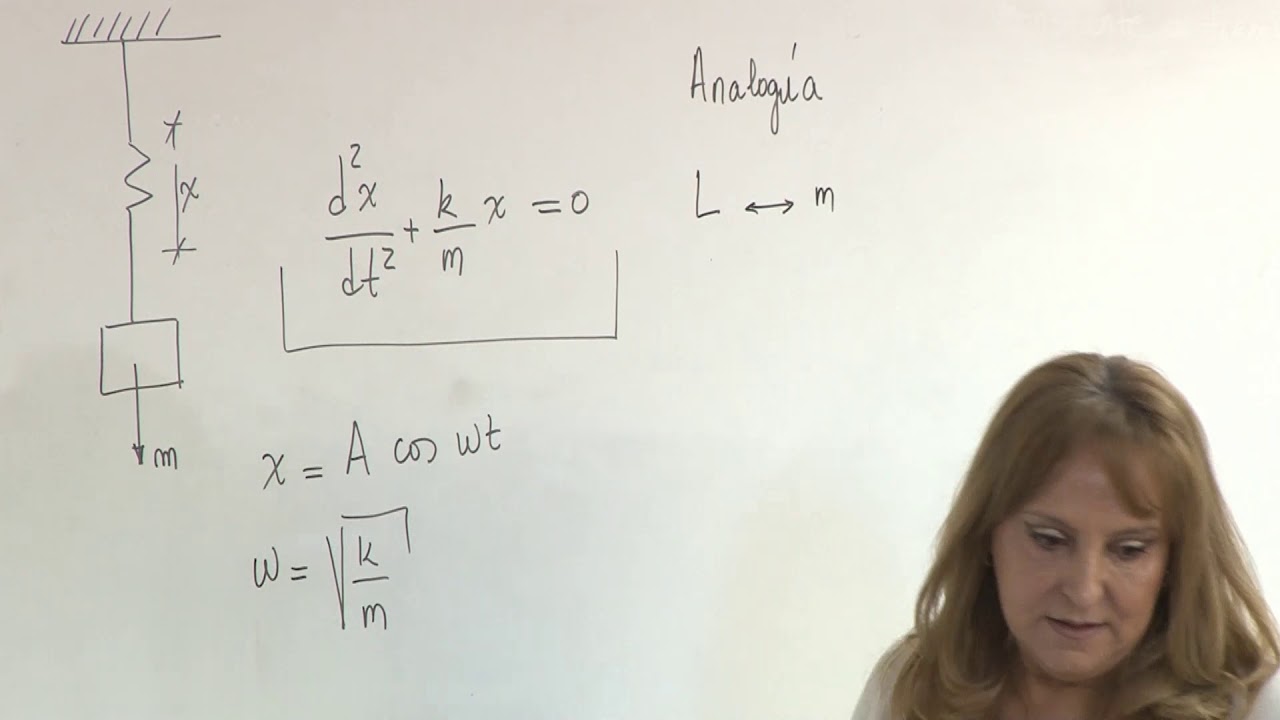 x
m
d²x/dt² + k/m x = 0
x = A cos wt
w = √(k/m)
Analogía
L ↔ m